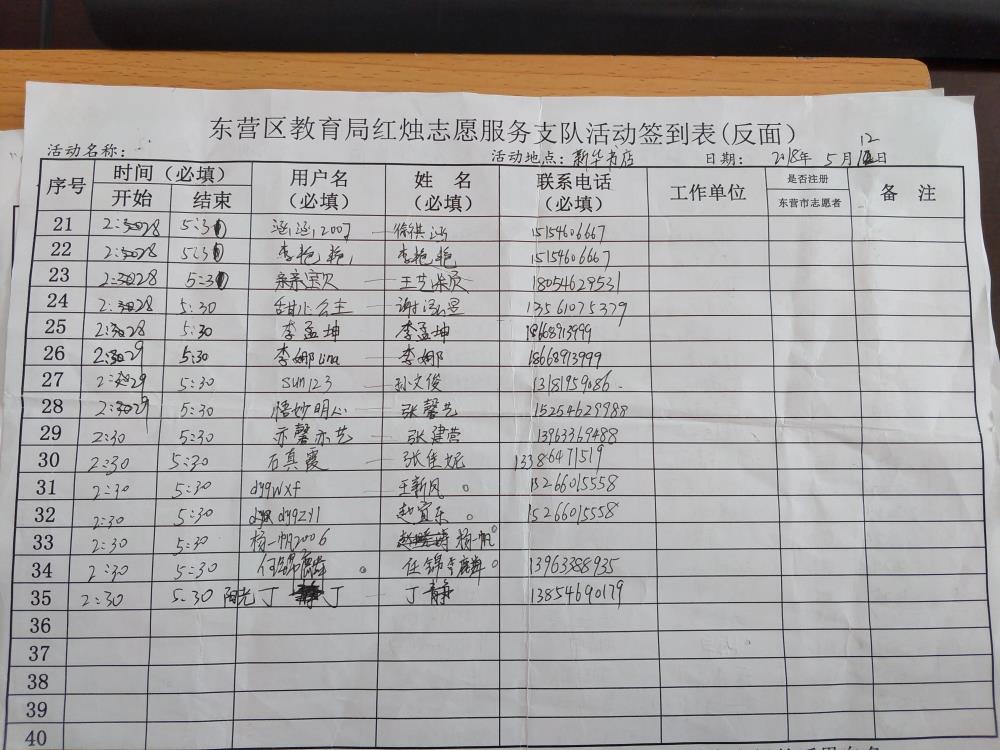 东营区教育局红烛志愿服务支队活动签到表(反面)
活动名称： 活动地点：新华书店 日期：2018年5月12日
序号 时间（必填） 用户名（必填） 姓名（必填） 联系电话（必填） 工作单位 是否注册东营市志愿者 备注
开始 结束
21 5:30 涵涵2007 15154606667
22 5:30 李艳艳1 李艳艳 15154606667
23 5:30 亲亲宝贝 18054629531
24 5:30 甜心公主 13561075379
25 5:30 李孟坤 李孟坤 18668913999
26 5:30 李娜Lina 李娜 18668913999
27 5:30 sun123 孙文俊 13181959086
28 5:30 悟妙明心 张馨艺 15254629988
29 2:30 5:30 亦馨亦艺 张建营 13963369488
30 2:30 5:30 石真霞 张佳妮 13386471519
31 2:30 5:30 dyqwxf 王新风 15266015558
32 2:30 5:30 dyqzyl 赵宜乐 15266015558
33 2:30 5:30 杨一帆2006 杨一帆
34 2:30 5:30 任锦麟 任锦麟 13963388935
35 2:30 5:30 阳光丁丁 丁静 13854690179
36
37
38
39
40